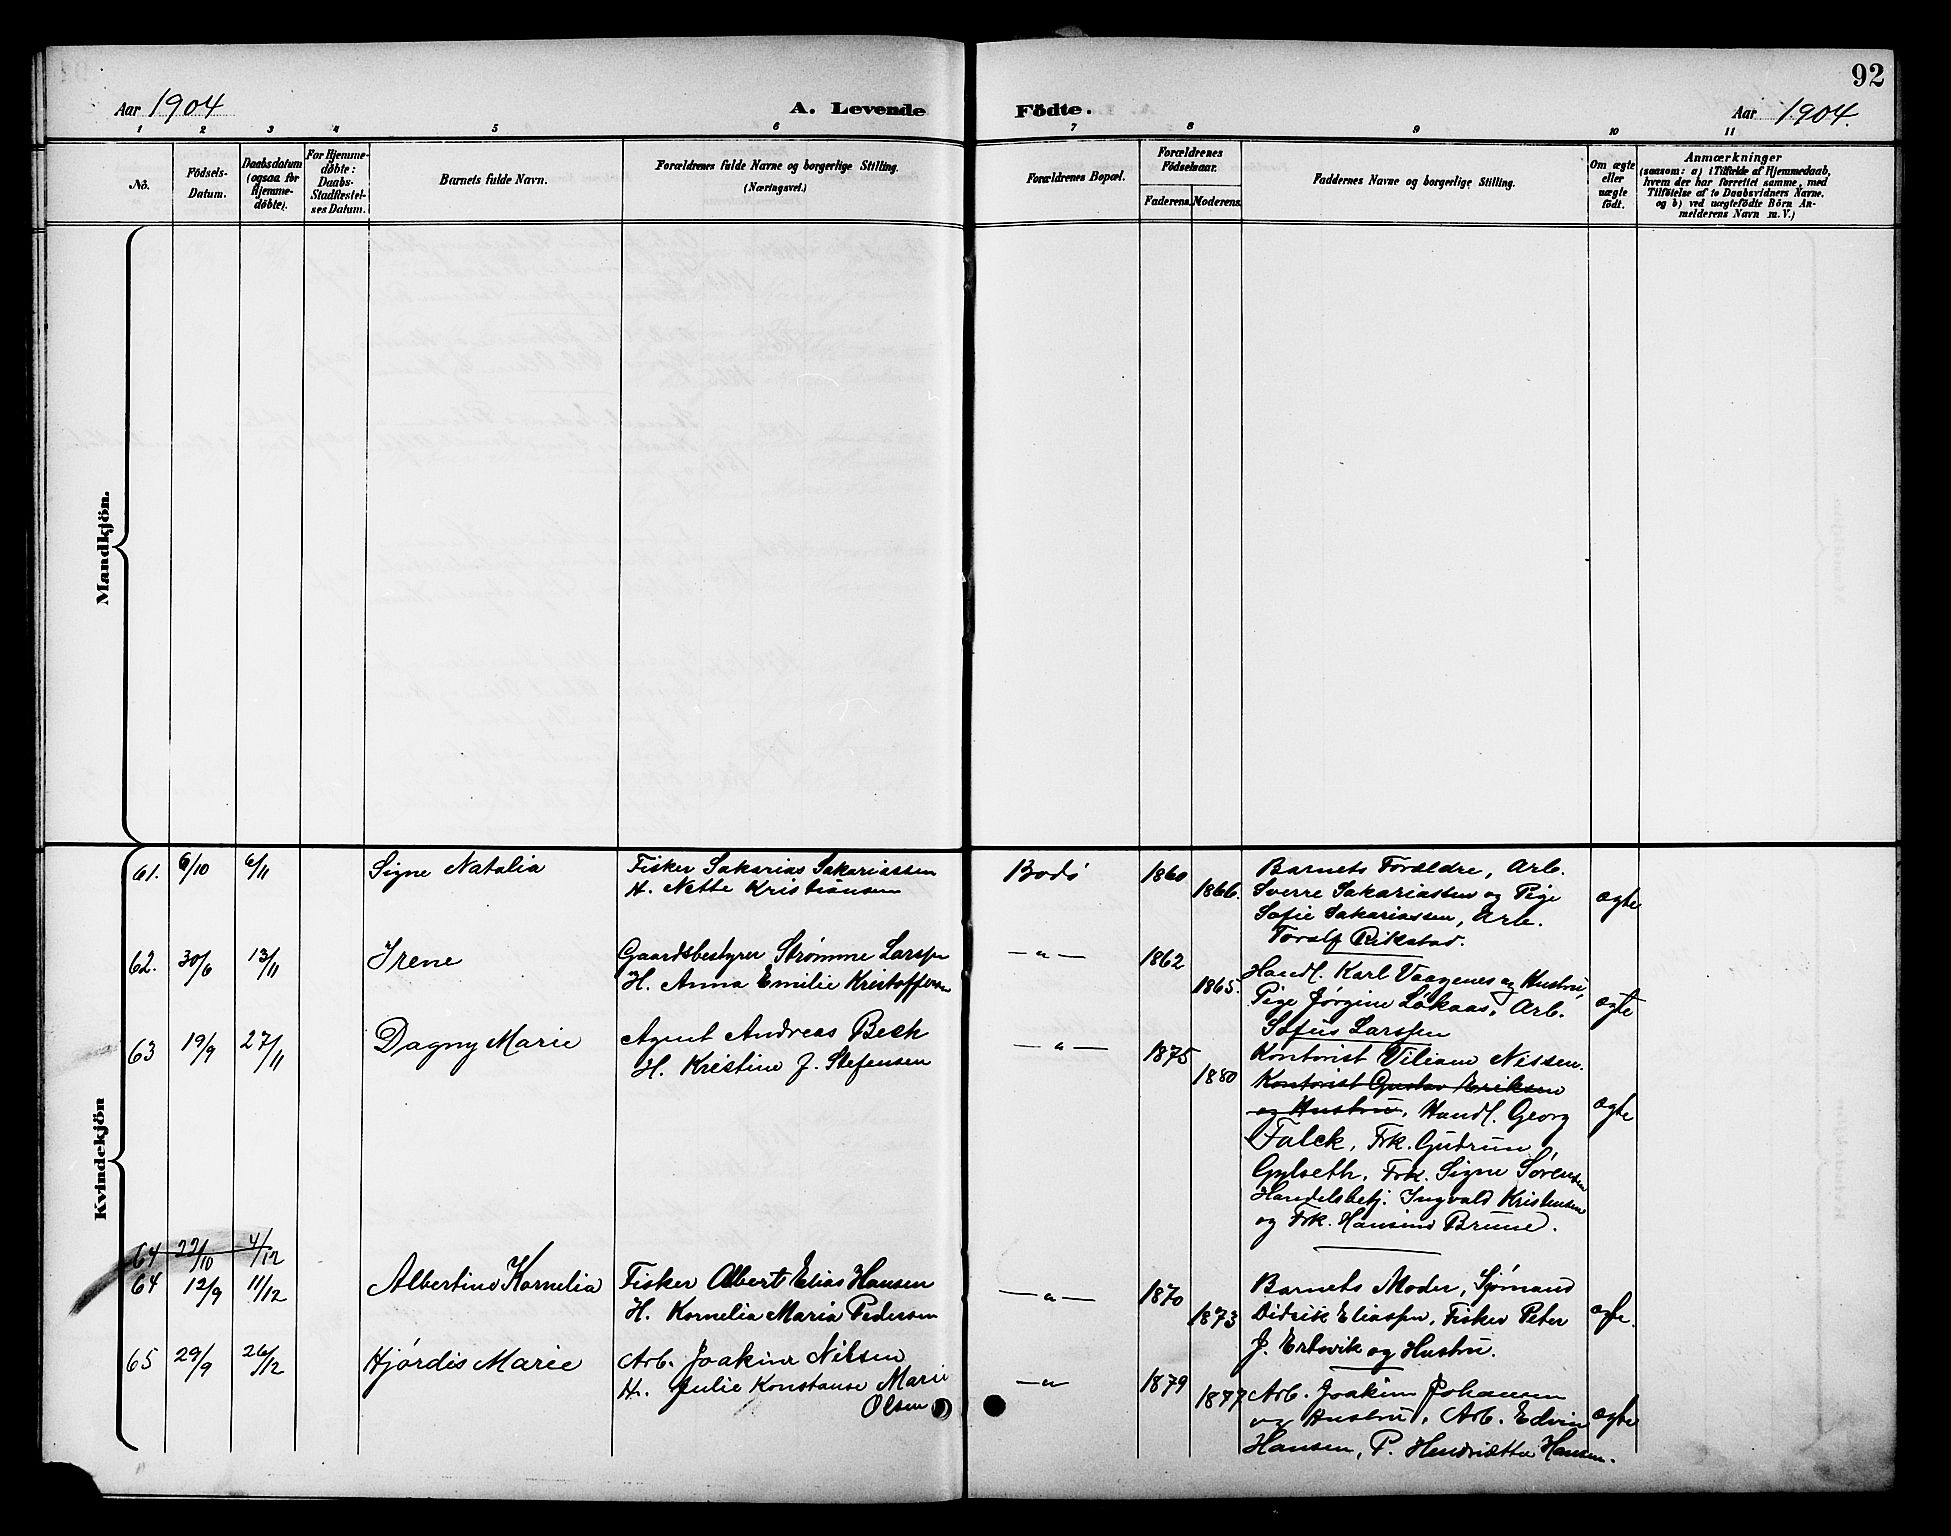 92
Aar 1904
A. Levende
Födte.
Aar 1904.
1 2 3 4 5 6 7 8 9 10 11
No.
Födsels-
Datum.
Daabsdatum
(ogsaa for
Hjemme-
døbte).
For Hjemme-
døbte:
Daabs-
Stadfæstel-
ses Datum.
Barnets fulde Navn.
Forældrenes fulde Navne og borgerlige Stilling.
(Næringsvei.)
Forældrenes Bopæl.
Forældrenes
Födselsaar.
Faderens. Moderens.
Faddernes Navne og borgerlige Stilling.
Om ægte
eller
uægte
født.
Anmærkninger
(saasom: a) i Tilfælde af Hjemmedaab,
hvem der har forrettet samme, med
Tilføielse af to Daabsvidners Navne.
og b) ved uægtefødte Börn An-
melderens Navn m. V.)
Mandkjön.
Kvindekjön
61. 6/10 6/11 Signe Natalia
Fisker Sakarias Sakariassen
H. Nette Kristiansen
Bodø 1860 1866.
Barnets Forældre, Arb.
Sverre Sakariassen og Pige
Sofie Sakariassen, Arb.
Toralf Rikstad.
ægte
62. 30/6 13/11 Irene
Gaardsbestyrer Strømme Larssen
H. Anna Emilie Kristoffersen
—"— 1862 1865.
Handl. Karl Vaagenes og Hustru,
Pige Jørgine Løkaas, Arb.
Sofus Larssen
ægte
63 19/9 27/11 Dagny Marie
Agent Andreas Bech
H. Kristine J. Stefensen
—"— 1875 1880
Kontorist Viliam Nissen.
Kontorist Gustav Eriksen
og Hustru, Handl. Georg
Falck, Frk. Gudrun
Gylseth, Frk. Signe Sørensen
Handelsbetj. Ingvald Kristensen
og Frk. Hansine Brune.
ægte
64 22/10 4/12
64 12/9 11/12 Albertine Kornelia
Fisker Albert Elias Hansen
H. Kornelia Maria Pedersen
—"— 1870 1873
Barnets Moder, Sjømand
Didrik Eliassen, Fisker Peter
J. Ertsvik og Hustru.
ægte.
65 29/9 26/12 Hjørdis Marie
Arb. Joakim Nilsen
H. Julie Konstanse Marie
Olsen
—"— 1879 1877
Arb. Joakim Johansen
og Hustru, Arb. Edvin
Hansen, P. Hendriette Hansen.
ægte